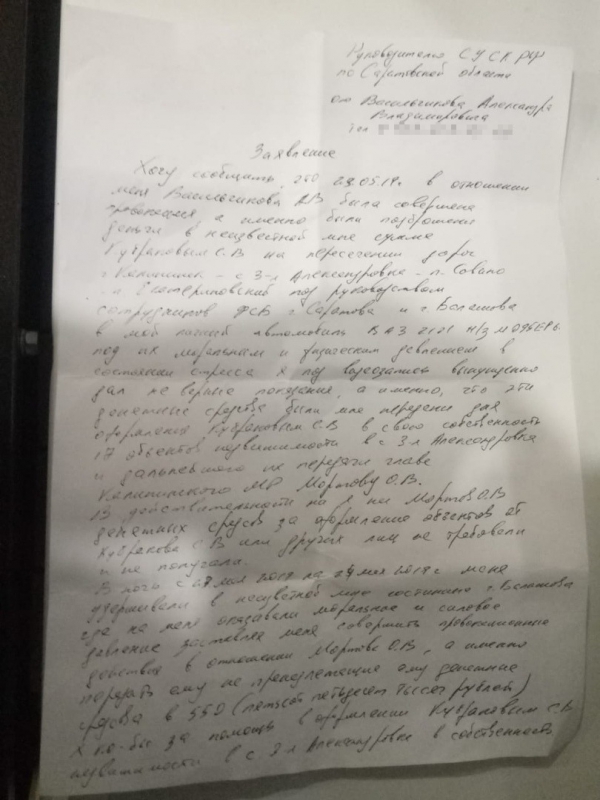 Руководителю СУ СК РФ
по Саратовской области
от Васильчикова Александра
Владимировича
тел
Заявление
Хочу сообщить, что 23.05.19г. в отношении
меня Васильчикова АВ была совершена
провокация а именно были подброшены
деньги в неизвестной мне сумме
С.В на пересечении дорог
г Калининск - с 3-я Александровка - п.
п. Екатериновский под руководством
сотрудников ФСБ г Саратова и г Балашова
в мой личный автомобиль ВАЗ н/з
под их моральным и физическим давлением в
состоянии стресса я под вынужденно
дал не верные показания, а именно, что эти
денежные средства были мне переданы для
оформления С.В в свою собственность
17 объектов недвижимости в с 3-я Александровка
и дальнейшего их передачи главе
Калининского МР О.В.
В действительности ни я ни О.В
денежных средств за оформление объектов от
С В или других лиц не требовали
и не получали.
В ночь с мая 2019 на мая 2019г меня
удерживали в неизвестной мне гостинице г. Балашова
где на меня оказывали моральное и силовое
давление заставляя меня совершить провокационные
действия в отношении О.В, а именно
передать ему не принадлежащие ему денежные
средства в 550 (пятьсот пятьдесят тысяч рублей)
як ко-бы за помощь в оформлении С.В
недвижимости в с 3-я Александровке в собственность